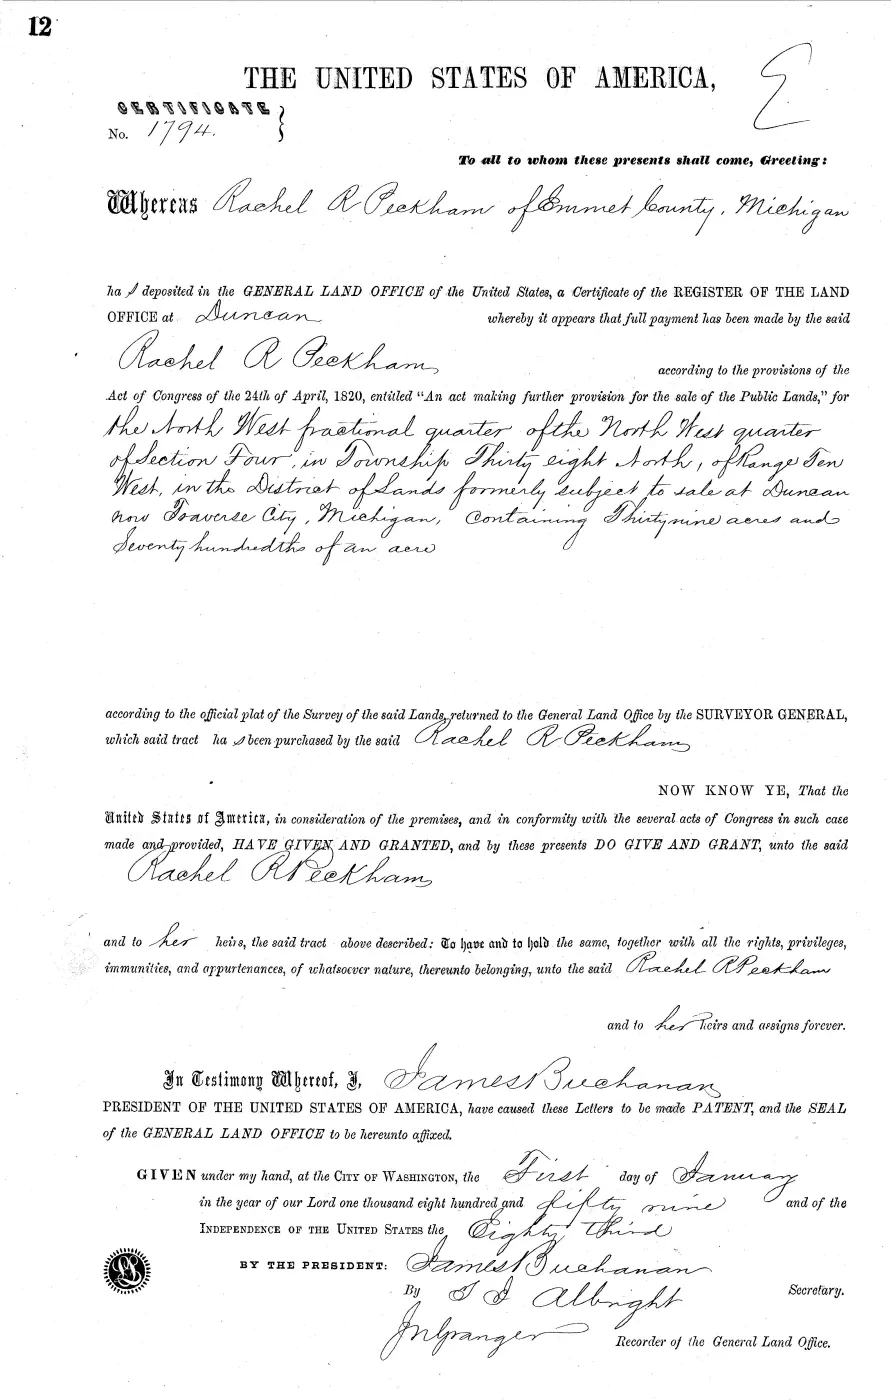 12
THE UNITED STATES OF AMERICA,
CERTIFICATE
No. 1794.
To all to whom these presents shall come, Greeting:
Whereas Rachel R Peckham of Emmet County, Michigan
ha s deposited in the GENERAL LAND OFFICE of the United States, a Certificate of the REGISTER OF THE LAND
OFFICE at Duncan whereby it appears that full payment has been made by the said
Rachel R Peckham according to the provisions of the
Act of Congress of the 24th of April, 1820, entitled "An act making further provision for the sale of the Public Lands," for
the North West fractional quarter of the North West quarter
of Section Four, in Township Thirty eight North, of Range Ten
West, in the District of Lands formerly subject to sale at Duncan
now Traverse City, Michigan, containing Thirty nine acres and
Seventy hundredths of an acre
according to the official plat of the Survey of the said Lands, returned to the General Land Office by the SURVEYOR GENERAL,
which said tract ha s been purchased by the said Rachel R Peckham
NOW KNOW YE, That the
United States of America, in consideration of the premises, and in conformity with the several acts of Congress in such case
made and provided, HAVE GIVEN AND GRANTED, and by these presents DO GIVE AND GRANT, unto the said
Rachel R Peckham
and to her heirs, the said tract above described: To have and to hold the same, together with all the rights, privileges,
immunities, and appurtenances, of whatsoever nature, thereunto belonging, unto the said Rachel R Peckham
and to her heirs and assigns forever.
In Testimony Whereof, I, James Buchanan
PRESIDENT OF THE UNITED STATES OF AMERICA, have caused these Letters to be made PATENT, and the SEAL
of the GENERAL LAND OFFICE to be hereunto affixed.
GIVEN under my hand, at the CITY OF WASHINGTON, the First day of January
in the year of our Lord one thousand eight hundred and fifty nine and of the
INDEPENDENCE OF THE UNITED STATES the Eighty third
BY THE PRESIDENT: James Buchanan
By T J Albright Secretary.
J N Granger Recorder of the General Land Office.